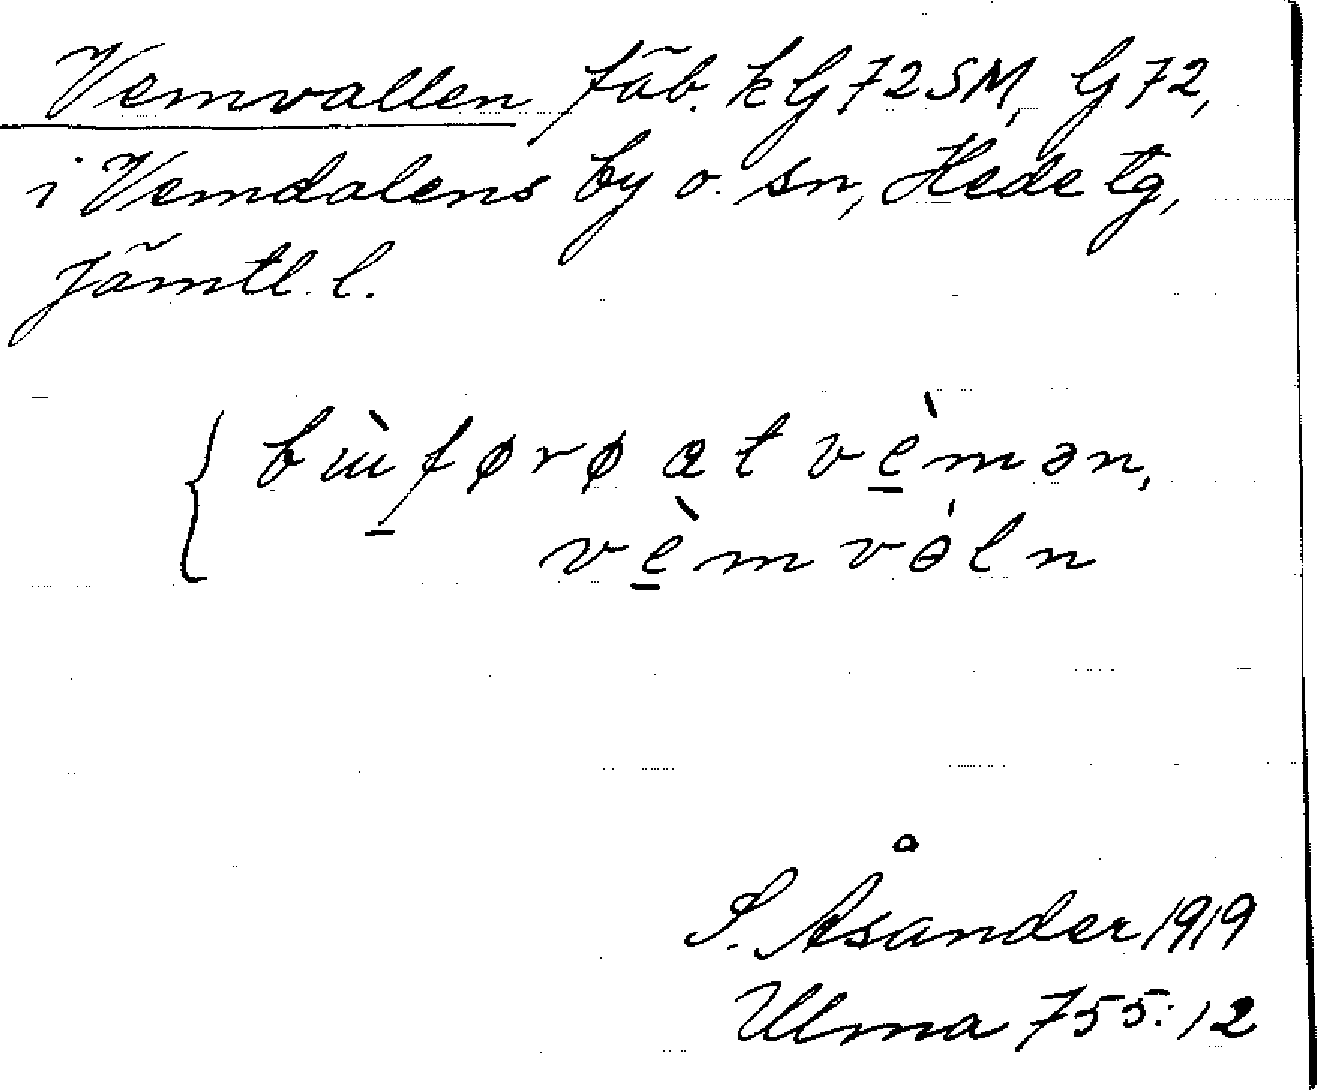 Vemvallen fäb. k G 72 SM, G 72,
i Vemdalens by o. sn, Hede tg,
Jämtl. l.
vèmən,
vèmvəln
S. Åsander 1919
Ulma 755:12